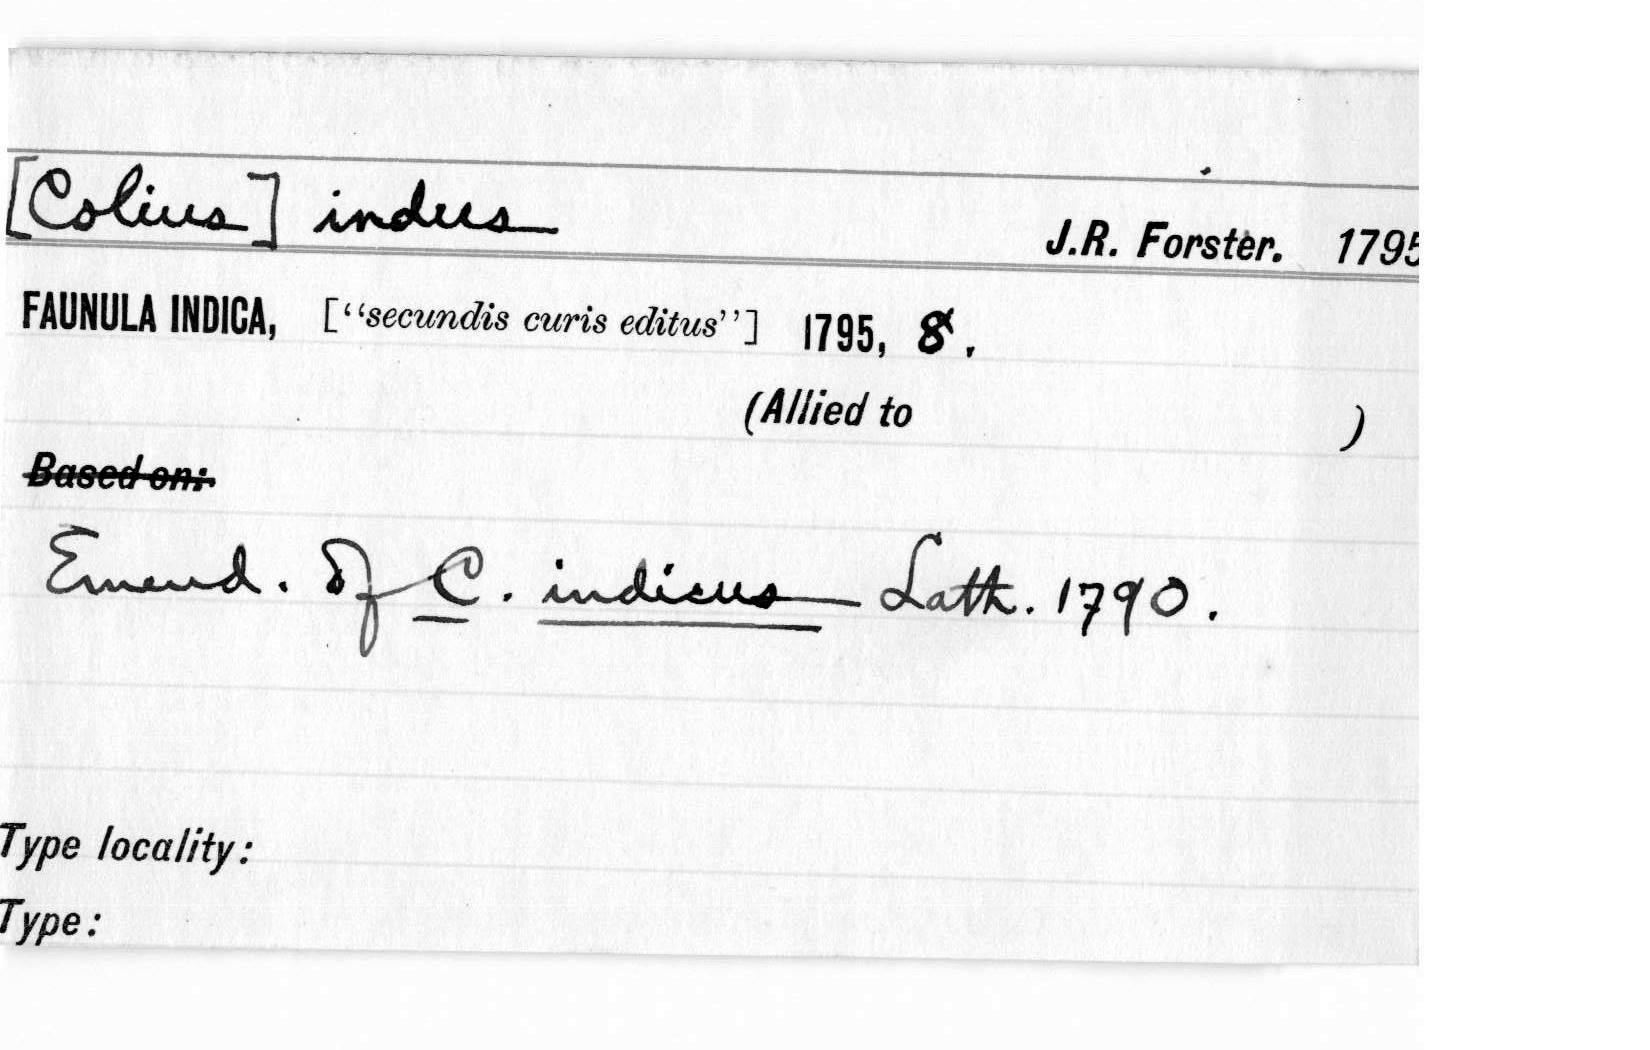 [Colius] indus J.R. Forster. 1795
FAUNULA INDICA, ["secundis curis editus"] 1795, 8.
(Allied to )
Based on:
Emend. of C. indicus Lath. 1790.
Type locality:
Type: